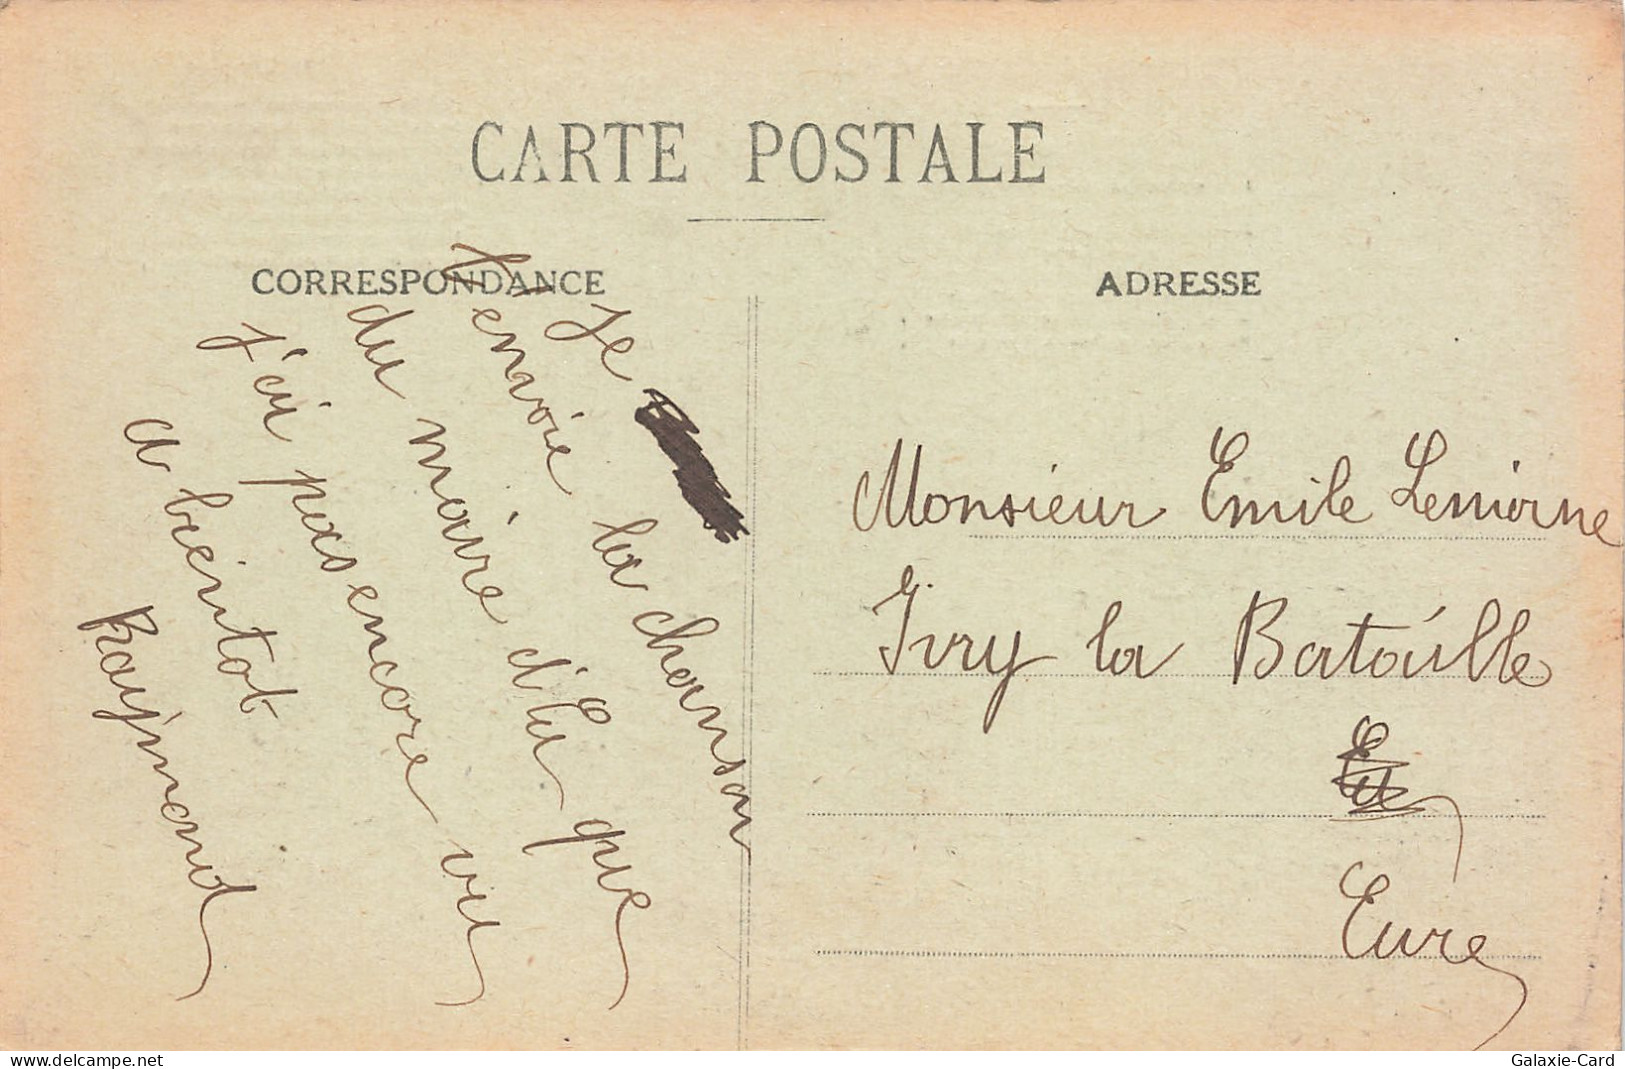 CARTE POSTALE
CORRESPONDANCE
ADRESSE
Je
t'envoie la chanson
du maire d'Eu que
j'ai pas encore vu
a bientot
Raymond
Monsieur Emile Lemoine
Ivry la Bataille
Eure
www.delcampe.net
Galaxie-Card